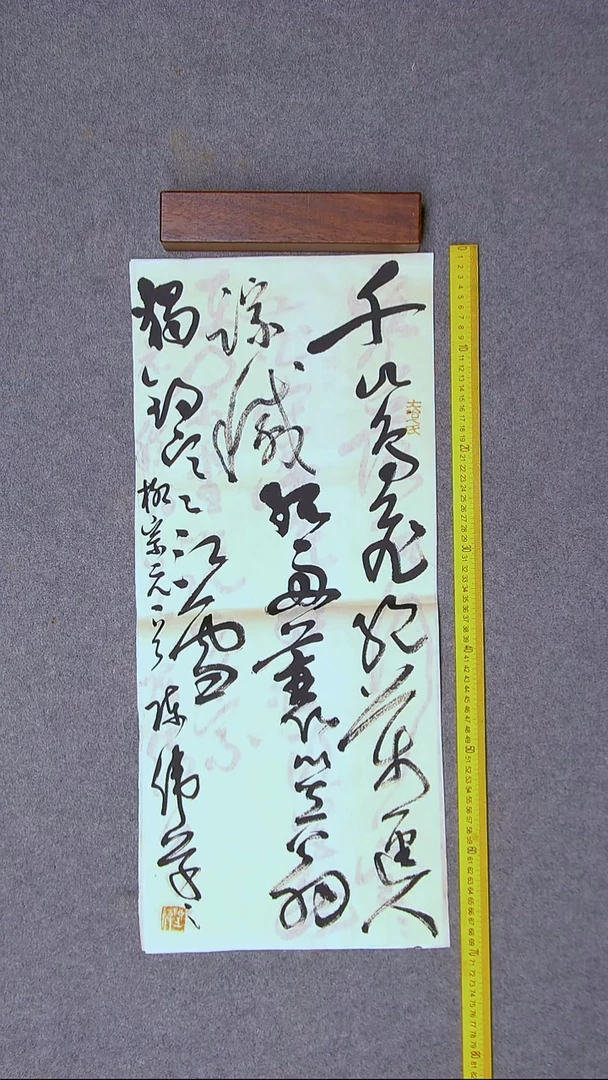 千山鸟飞绝万径人
踪灭孤舟蓑笠翁
独钓寒江雪
柳宗元一首 陈伟草